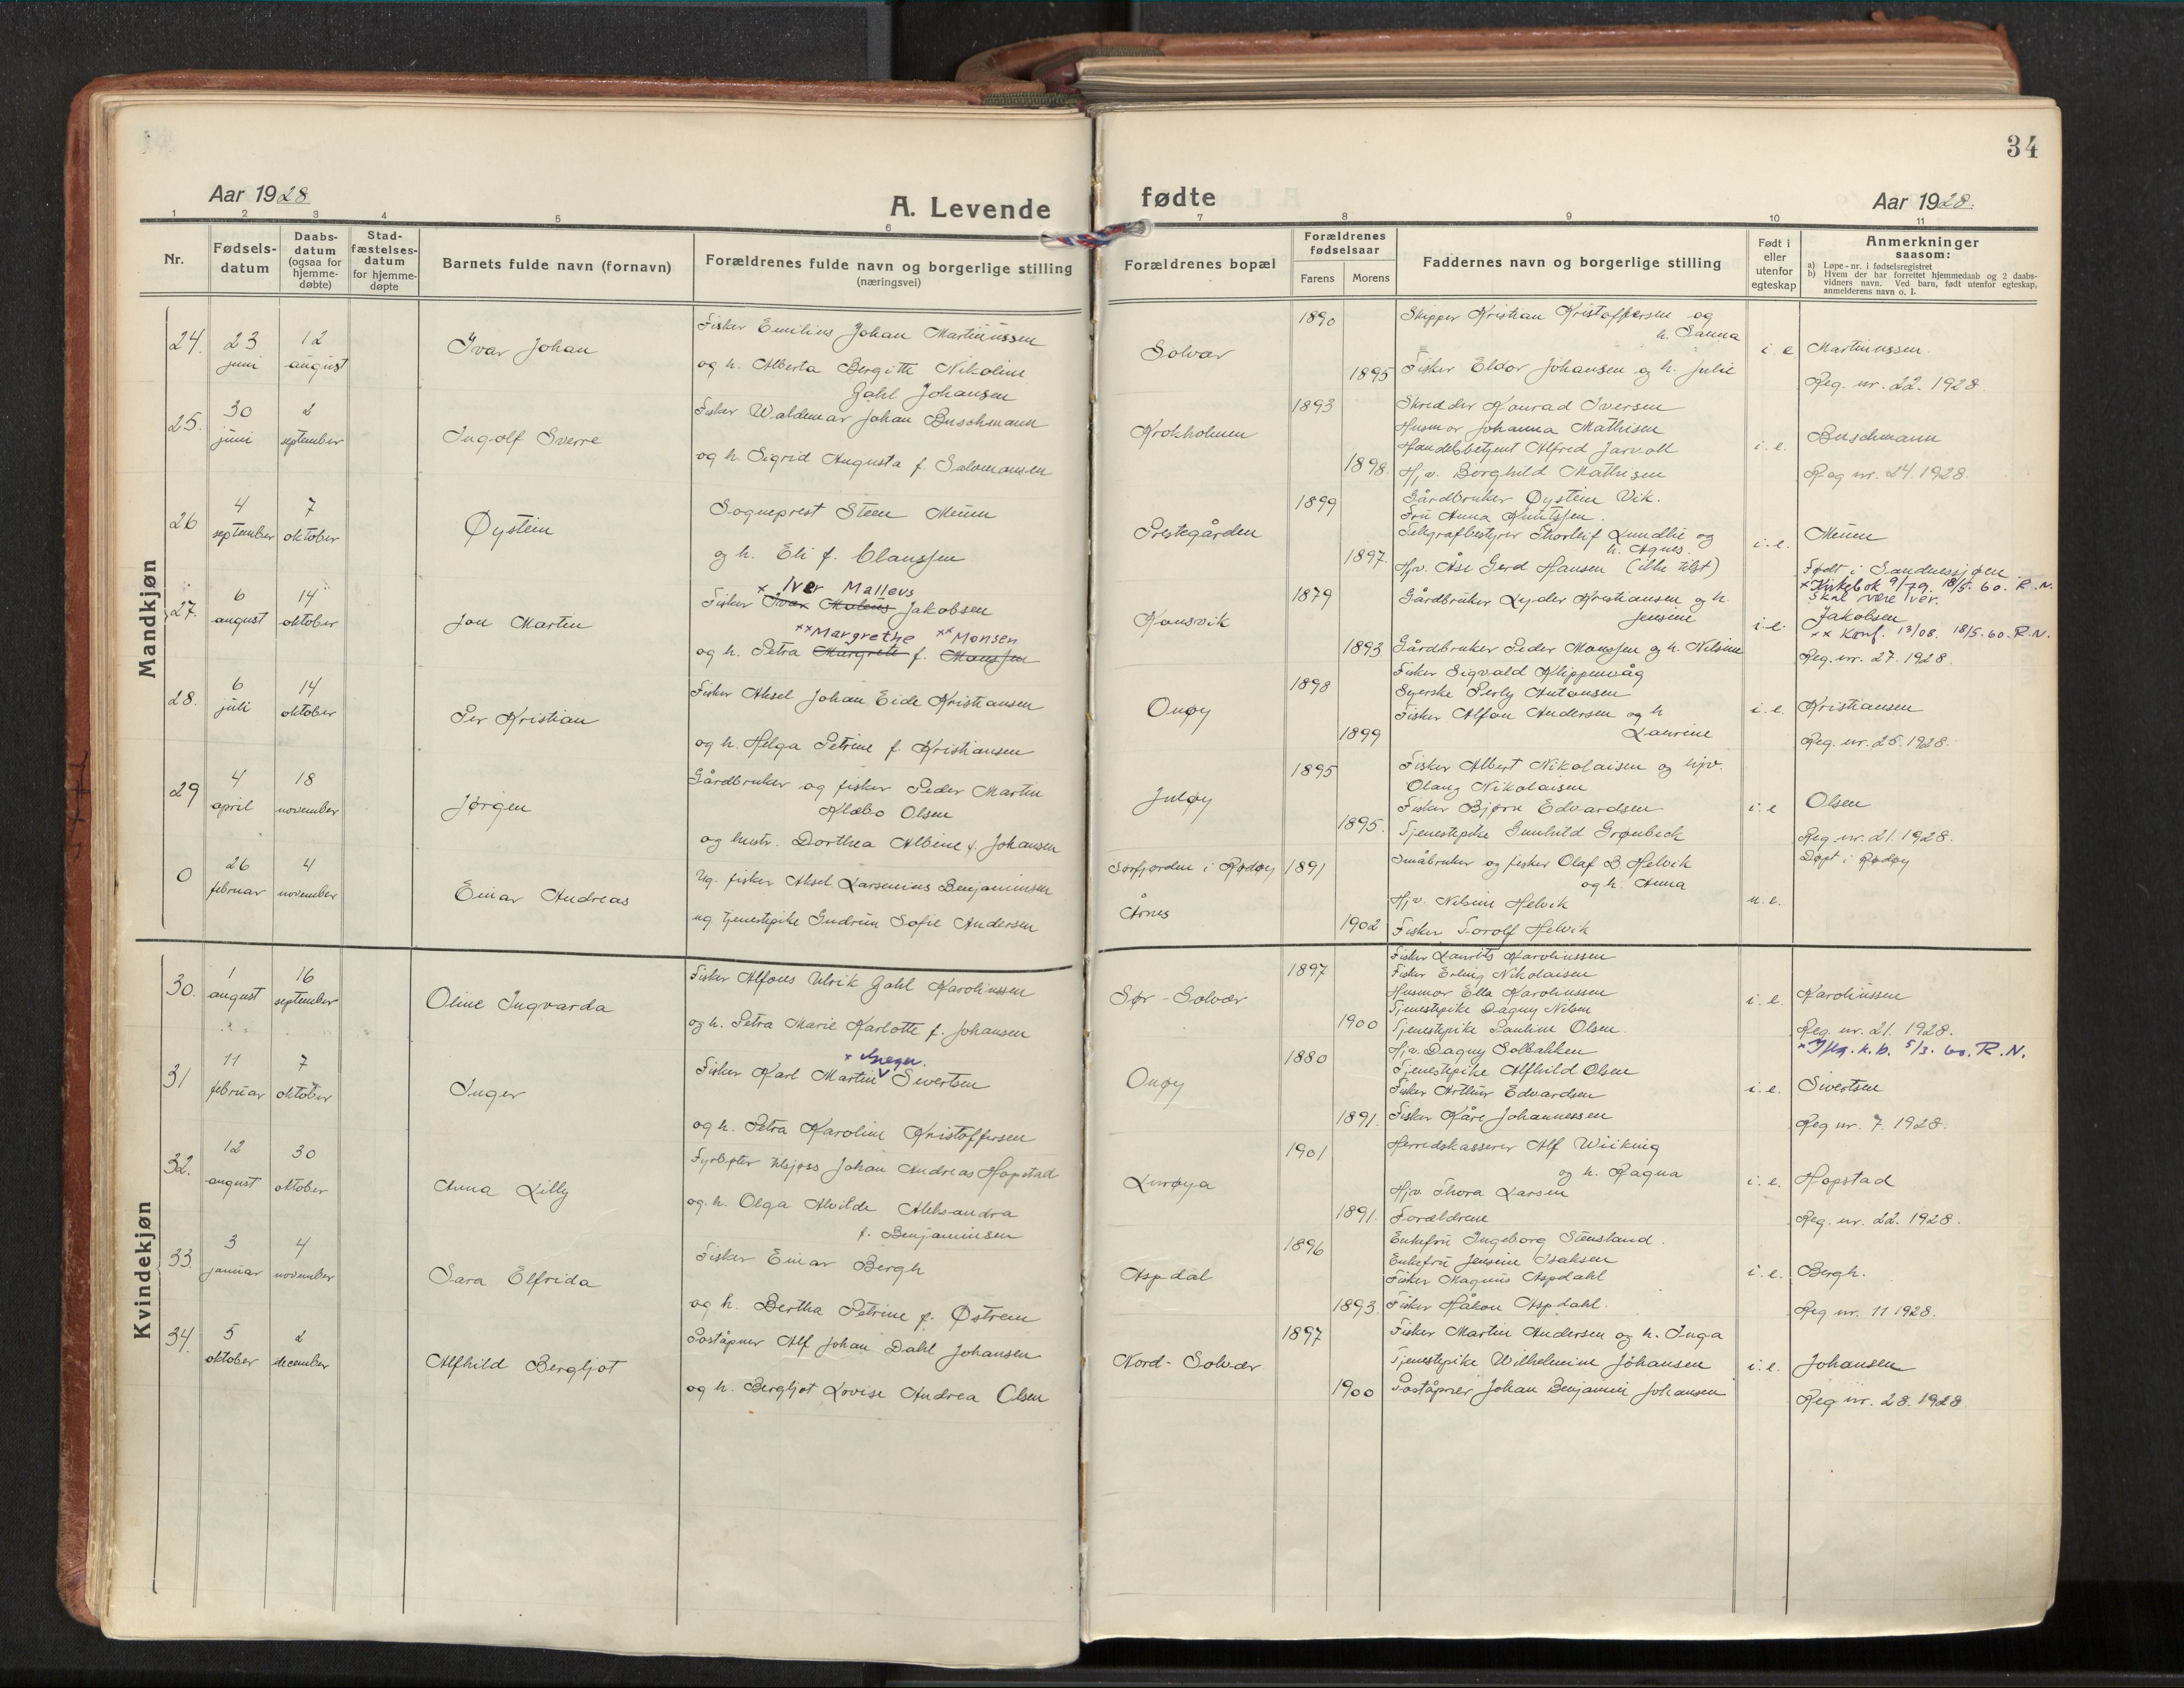 34
Aar 1928
A. Levende
fødte
Aar 1928.
1 2 3 4 5 6 7 8 9 10 11
Nr.
Fødsels-
datum
Daabs-
datum
(ogsaa for
hjemme-
døbte)
Stad-
fæstelses-
datum
for hjemme-
døpte
Barnets fulde navn (fornavn)
Forældrenes fulde navn og borgerlige stilling
(næringsvei)
Forældrenes bopæl
Forældrenes
fødselsaar
Farens Morens
Faddernes navn og borgerlige stilling
Født i
eller
utenfor
egteskap
Anmerkninger
saasom:
a) Løpe-nr. i fødselsregistret
b) Hvem der har forrettet hjemmedaab og 2 daabs-
vidners navn. Ved barn, født utenfor egteskap,
anmelderens navn o. l.
Mandkjøn
24. 23 juni
12 august
Ivar Johan
Fisker Emilius Johan Martinussen
og h. Alberta Bergitte Nikoline
Dahl Johansen
Solvær
1890
1895
Skipper Kristian Kristoffersen og
h. Sanna
Fisker Eldor Johansen og h. Julie
i. e
Martinussen.
Reg. nr. 22. 1928.
25. 30 juni
2 september
Ingolf Sverre
Fisker Waldemar Johan Buschmann
og h. Sigrid Augusta f. Salomonsen
Krokholmen
1893
1898.
Skredder Konrad Iversen
Husmor Johanna Mathisen
Handelsbetjent Alfred Jarvoll
Hjv. Borghild Mathisen
i. e.
Buschmann
Reg nr. 24. 1928.
26 4 september
7 oktober
Øystein
Sogneprest Steen Menen
og h. Eli f. Claussen
Prestegården
1899
1897.
Gårdbruker Øystein Vik.
Fru Anna Knutssen.
Telegrafbestyrer Thorleif Lundlie og
h. Agnes.
Hjv. Åse Gerd Hansen (ikke tilst)
i. e.
Menen
Født i Sandnessjøen
27. 6 august
14 oktober
Jon Martin
x Iver Mallevs
Fisker Ivar Maleus Jakobsen
xx Margrethe xx Monsen
og h. Petra Margrete f. Monssen
Konsvik
1879
1893
Gårdbruker Lyder Kristiansen og h.
Jensine
Gårdbruker Peder Monssen og h. Nilsine
i. e.
x Kirkebok 9/79. 18/5. 60. R.N.
skal være Iver.
Jakobsen
xx Konf. 13/08. 18/5. 60. R.N.
Reg. nr. 27. 1928.
28. 6 juli
14 oktober
Per Kristian
Fisker Aksel Johan Eide Kristiansen
og h. Helga Petrine f. Kristiansen
Onøy
1898
1899
Fisker Sigvald Klippenvåg
Syerske Perly Antonsen
Fisker Alfon Andersen og h
Laurine
i. e.
Kristiansen
Reg. nr. 25. 1928.
29 4 april
18 november
Jørgen
Gårdbruker og fisker Peder Martin
Klæbo Olsen
og hustr. Dorthea Albine f. Johansen
Juløy
1895
1895.
Fisker Albert Nikolaisen og hjv.
Olaug Nikolaisen
Fisker Bjørn Edvardsen
Tjenestepike Gunhild Grønbeck
i. e
Olsen
Reg. nr. 21. 1928.
0 26 februar
4 november
Einar Andreas
Ug. fisker Aksel Larsenius Benjaminsen
ug tjenestepike Gudrun Sofie Andersen
Sørfjorden i Rødøy
Årnes
1891
1902
Småbruker og fisker Olaf B. Helvik
og h. Anna
Hjv. Nilsine Helvik
Fisker Torolf Helvik
u. e.
Døpt i Rødøy
Kvindekjøn
30. 1 august
16 september
Oline Ingvarda
Fisker Alfons Ulrik Dahl Karolinssen
og h. Petra Marie Karlotte f. Johansen
Sør-Solvær
1897
1900
Fisker Laurits Karolinssen
Fisker Erling Nikolaisen
Husmor Ella Karolinssen
Tjenestepike Dagny Nilsen
Tjenestepike Pauline Olsen.
i. e.
Karolinssen
Reg. nr. 21. 1928.
31 11 februar
7 oktober
Inger
Fisker Karl Martin Sivertsen
og h. Petra Karoline Kristoffersen
Onøy
1880
1891.
Hjv. Dagny Solbakken
Tjenestepike Alfhild Olsen
Fisker Arthur Edvardsen
Fisker Kåre Johannessen
i. e.
k. b. 5/3. 60. R.N.
Sivertsen
Reg nr. 7. 1928.
32. 12 august
30 oktober
Anna Lilly
Fyrbøter tilsjøss Johan Andreas Hopstad
og. h. Olga Alvilde Aleksandra
f. Benjaminsen
Lurøya
1901
1891.
Herredskasserer Alf Wiiking
og h. Ragna
Hjv. Thora Larsen
Forældrene
i. e.
Hopstad
Reg. nr. 22. 1928.
33. 3 januar
4 november
Sara Elfrida
Fisker Einar Bergh
og h. Bertha Petrine f. Østrem
Aspdal
1896
1893.
Enkefru Ingeborg Stensland.
Enkefru Jensine Isaksen
Fisker Magnus Aspdahl
Fisker Håkon Aspdahl.
i. e.
Bergh.
Reg nr. 11 1928.
34. 5 oktober
2 december
Alfhild Bergljot
Poståpner Alf Johan Dahl Johansen
og h. Bergljot Lovise Andrea Olsen
Nord-Solvær
1897
1900
Fisker Martin Andersen og h. Inga
Tjenestepike Wilhelmine Johansen
Poståpner Johan Benjamin Johansen
i. e.
Johansen
Reg nr. 28. 1928.